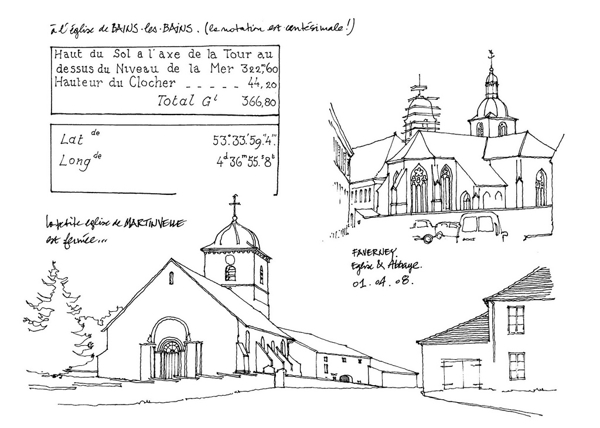 à l'église de BAINS-les-BAINS. (la notation est centésimale!)
Haut du Sol a l'axe de la Tour au
dessus du Niveau de la Mer 322,ᵐ60
Hauteur du Clocher _ _ _ _ _ 44,20
Total Gᵗ 366,80
Lat ᵈᵉ 53°.33'.59."4‴.
Long ᵈᵉ 4ᵈ 36ᵐ 55.ˢ 8ᵗ
La petite église de MARTINVELLE
est fermée...
FAVERNEY.
Eglise & Abbaye.
01.04.08.